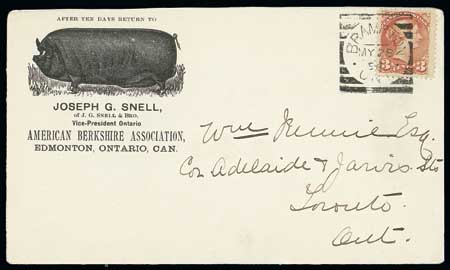 AFTER TEN DAYS RETURN TO
JOSEPH G. SNELL,
of J. G. SNELL & BRO.
Vice-President Ontario
AMERICAN BERKSHIRE ASSOCIATION,
EDMONTON, ONTARIO, CAN.
BRAMPTON
MY 28
ONT
3 3
Wm Rennie Esq.
Cor Adelaide & Jarvis Sts
Toronto.
Ont.